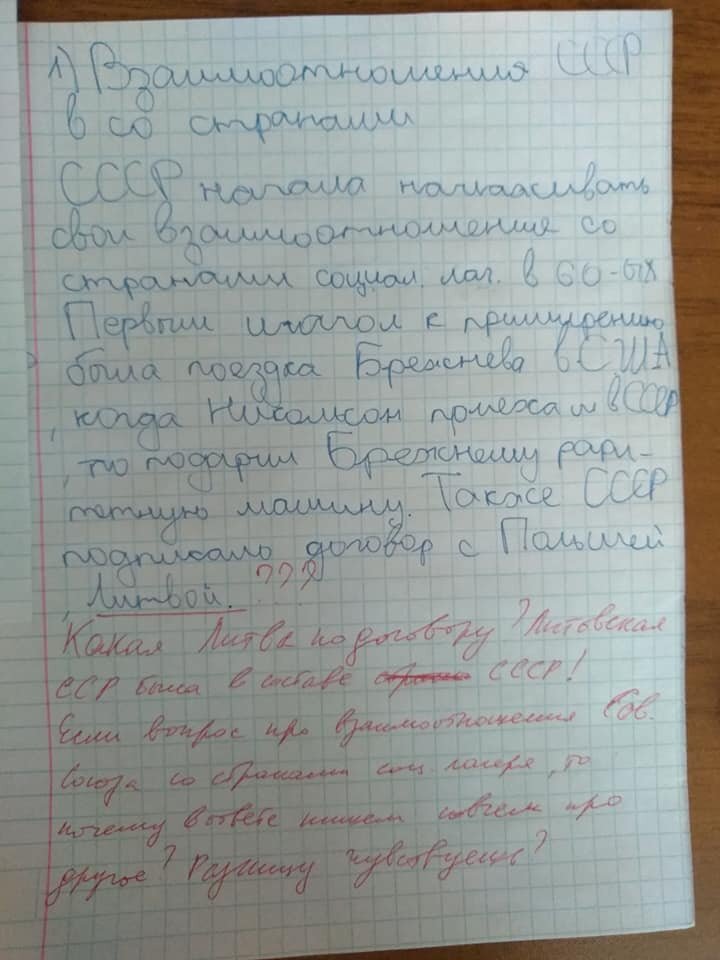 1) Взаимоотношения СССР
в со странами
СССР начала налаживать
свои взаимоотношения со
странами социал. лаг. в 60-ых
Первым шагом к примирению
была поездка Брежнева в США
, когда Никсон приехал в СССР
, то подарил Брежнему рари-
тетную машину. Также СССР
подписало договор с Польшей
, Литвой. ???
Какая Литва по договору? Литовская
ССР была в составе СССР!
Если вопрос про взаимоотношения Сов.
Союза со странами соц. лагеря, то
почему в ответе пишем совсем про
другое? Разницу чувствуешь?